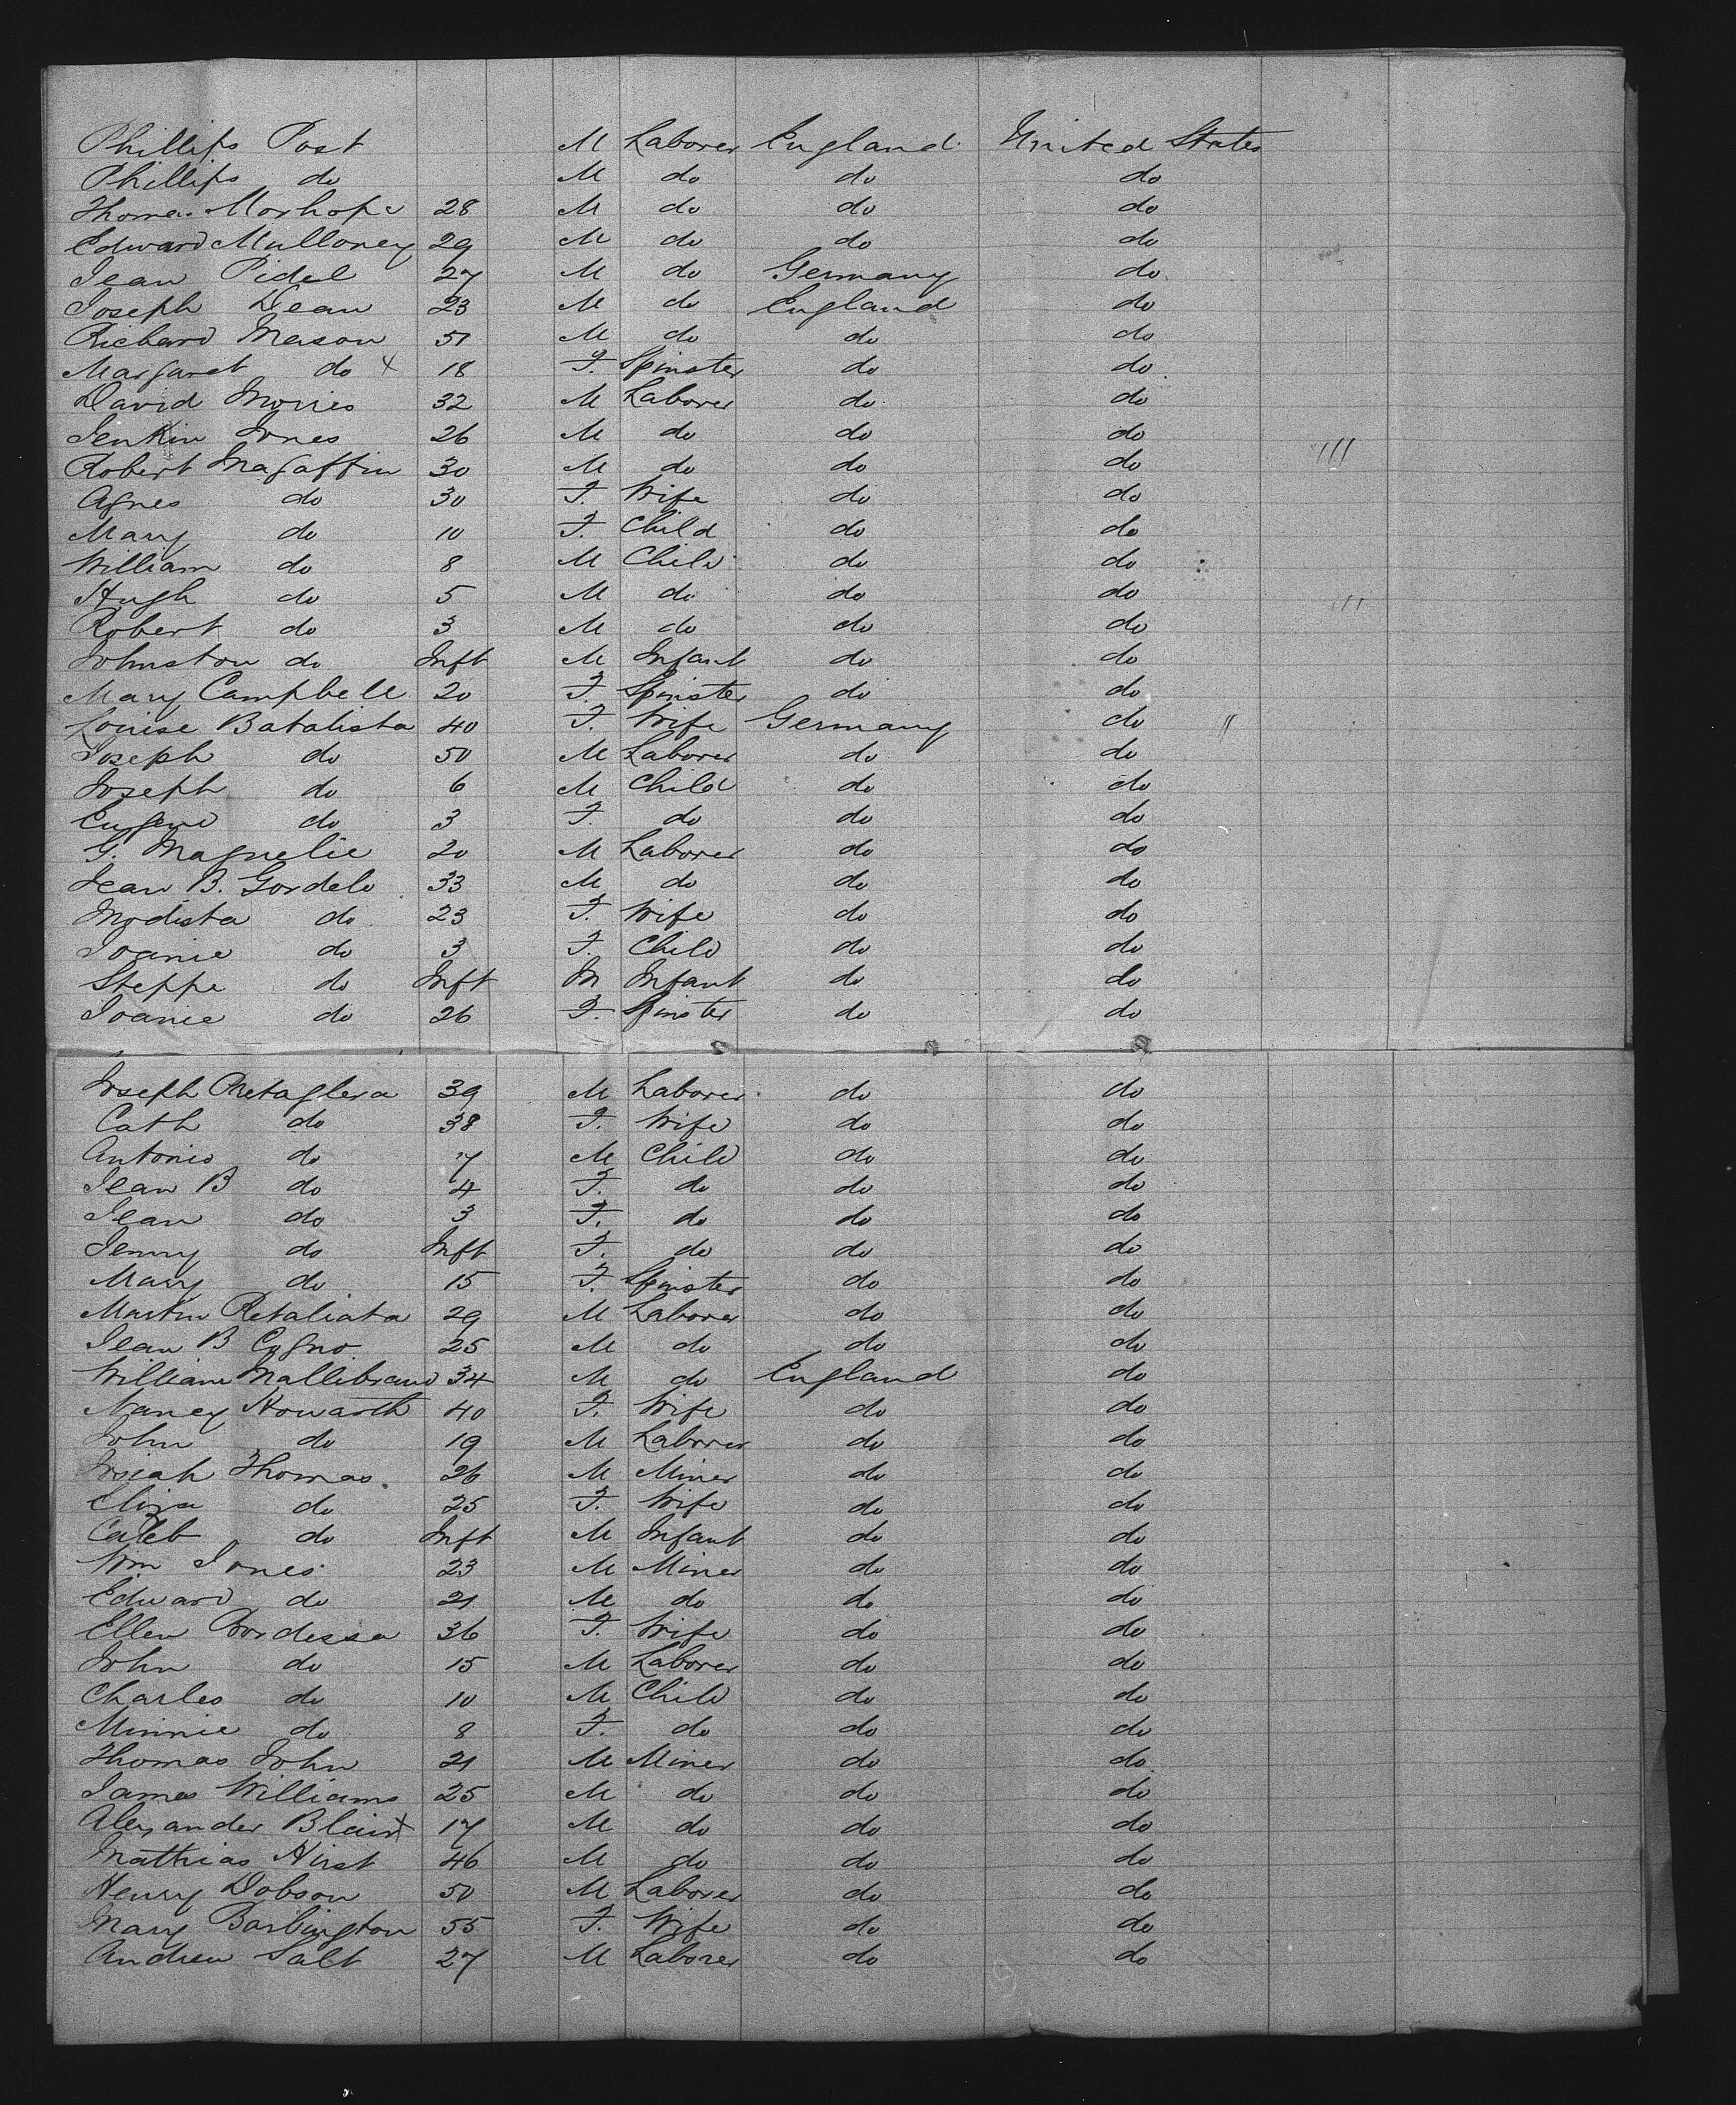 Phillips Post M Laborer England United States
Phillips do M do do do
Thomas Morhope 28 M do do do
Edward Mulloney 29 M do do do
Jean Pidel 27 M do Germany do
Joseph Dean 23 M do England do
Richard Mason 51 M do do do
Margaret do x 18 F. Spinster do do
David Morris 32 M Laborer do do
Jenkin Jones 26 M do do do
Robert Magaffin 30 M do do do
Agnes do 30 F. Wife do do
Mary do 10 F. Child do do
William do 8 M Child do do
Hugh do 5 M do do do
Robert do 3 M do do do
Johnston do Inft M Infant do do
Mary Campbell 20 F. Spinster do do
Louise Batalista 40 F. Wife Germany do
Joseph do 50 M Laborer do do
Joseph do 6 M Child do do
Eugene do 3 F. do do do
G. Magnelie 20 M Laborer do do
Jean B. Gordelo 33 M do do do
Modista do 23 F. Wife do do
Joanie do 3 F. Child do do
Steppe do Inft M Infant do do
Joanie do 26 F. Spinster do do
Joseph Retaglera 39 M Laborer do do
Cath do 38 F. Wife do do
Antonio do 7 M Child do do
Jean B do 4 F. do do do
Jean do 3 F. do do do
Jenny do Inft F. do do do
Mary do 15 F. Spinster do do
Martin Retaliata 29 M Laborer do do
Jean B Cogno 25 M do do do
William Mallibrand 34 M do England do
Nancy Howarth 40 F. Wife do do
John do 19 M Laborer do do
Josiah Thomas 26 M Miner do do
Eliza do 25 F. Wife do do
Caleb do Inft M Infant do do
Wm Jones 23 M Miner do do
Edward do 21 M do do do
Ellen Bordessa 36 F. Wife do do
John do 15 M Laborer do do
Charles do 10 M Child do do
Minnie do 8 F. do do do
Thomas John 21 M Miner do do
James Williams 25 M do do do
Alexander Blair x 17 M do do do
Mathias Hirst 46 M do do do
Henry Dobson 50 M Laborer do do
Mary Barbington 55 F. Wife do do
Andrew Salt 27 M Laborer do do